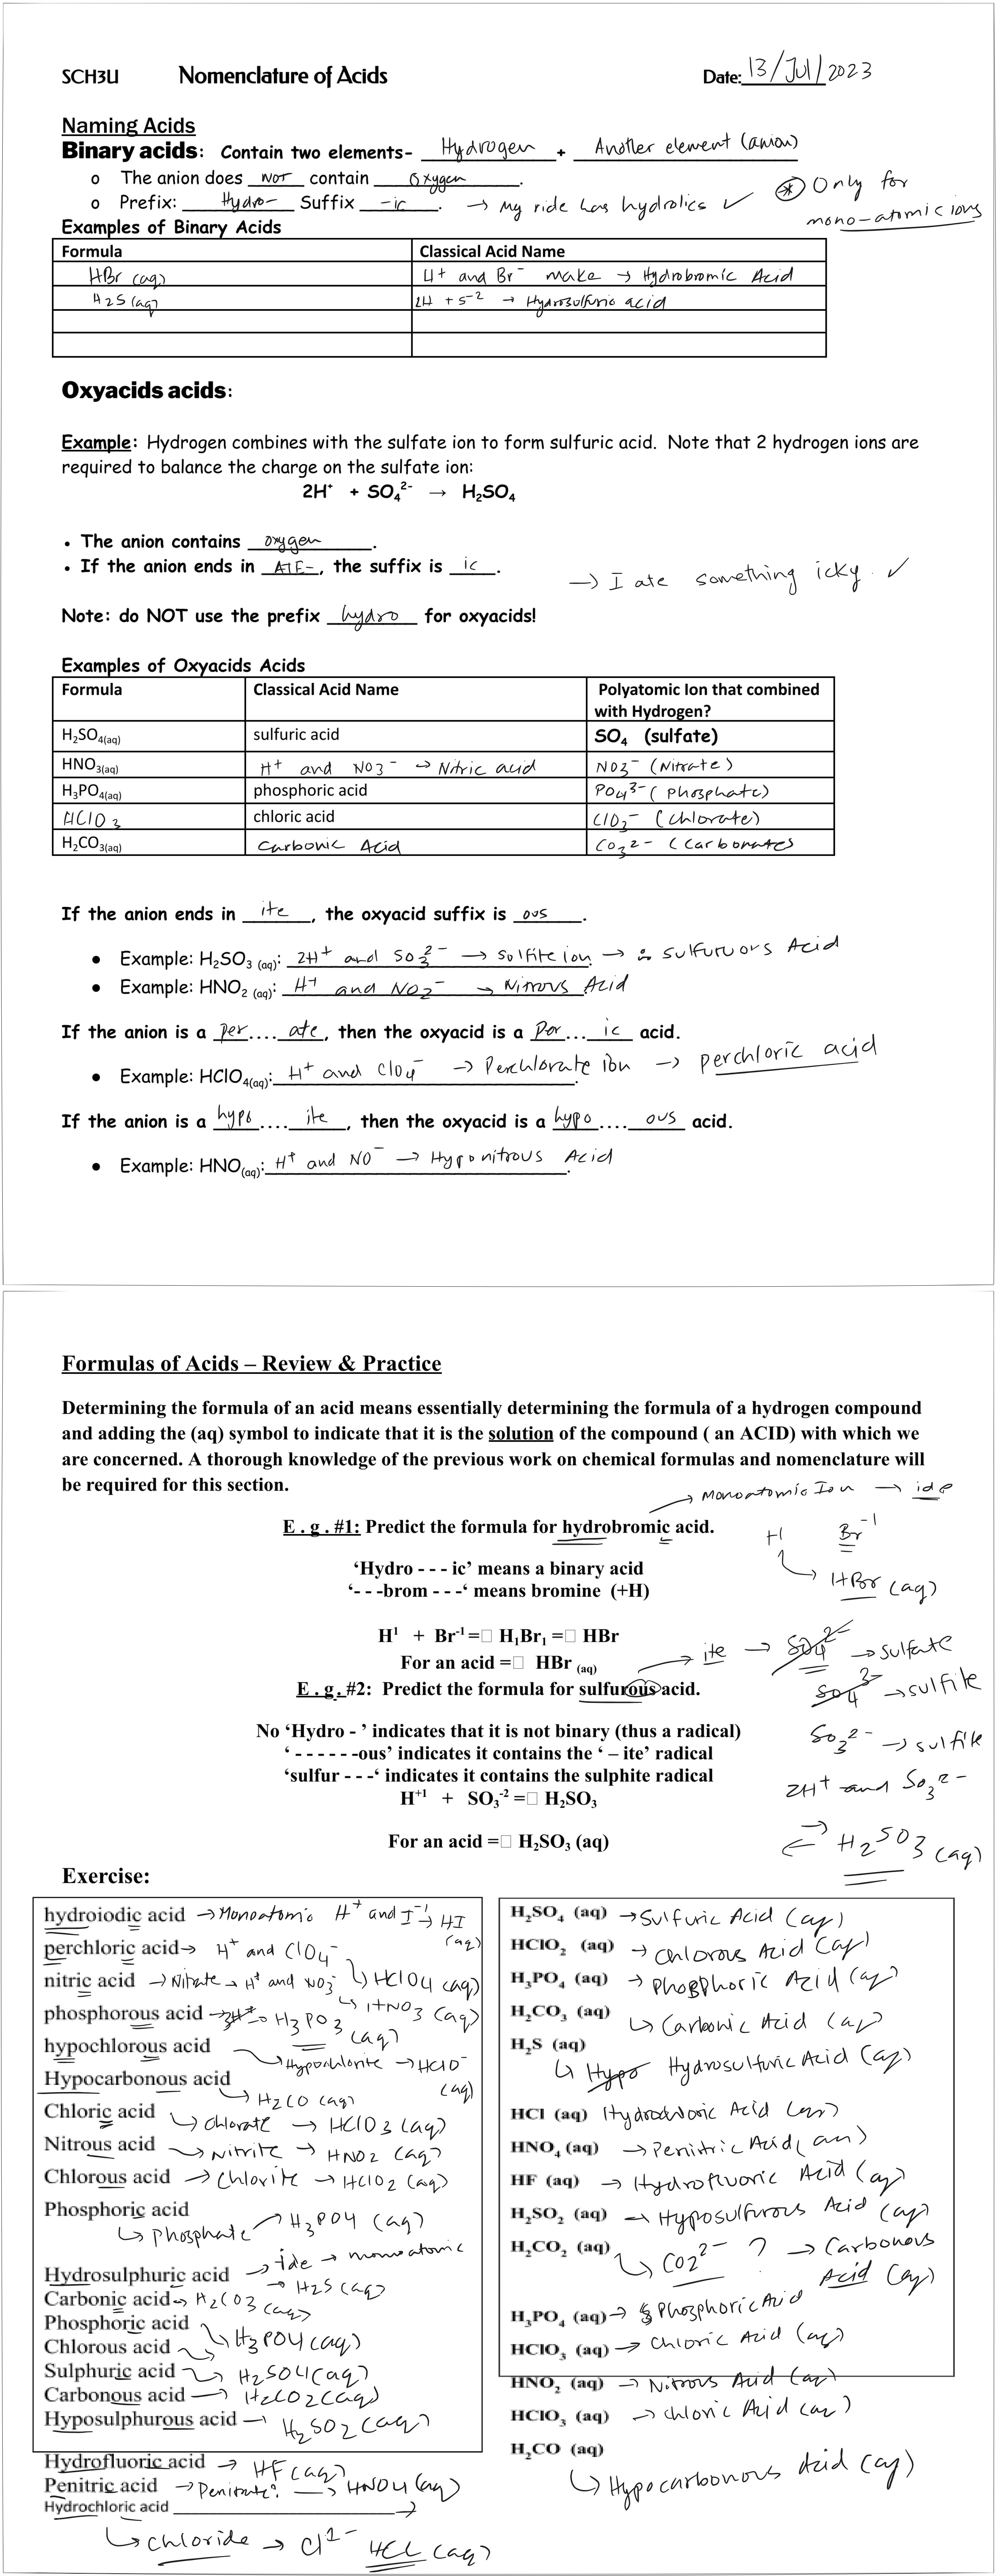 SCH3U Nomenclature of Acids Date: 13/Jul/2023
Naming Acids
Binary acids: Contain two elements- Hydrogen + Another element (anion)
o The anion does NOT contain oxygen.
o Prefix: Hydro- Suffix -ic. → My ride has hydrolics ✓ * Only for
mono-atomic ions
Examples of Binary Acids
Formula Classical Acid Name
HBr (aq) H+ and Br- make → Hydrobromic Acid
H2S (aq) 2H + S-2 → Hydrosulfuric acid
Oxyacids acids:
Example: Hydrogen combines with the sulfate ion to form sulfuric acid. Note that 2 hydrogen ions are
required to balance the charge on the sulfate ion:
2H+ + SO4 2- → H2SO4
• The anion contains oxygen.
• If the anion ends in ATE-, the suffix is ic.
→ I ate something icky. ✓
Note: do NOT use the prefix hydro for oxyacids!
Examples of Oxyacids Acids
Formula Classical Acid Name Polyatomic Ion that combined
with Hydrogen?
H2SO4(aq) sulfuric acid SO4 (sulfate)
HNO3(aq) H+ and NO3- → Nitric acid NO3- (Nitrate)
H3PO4(aq) phosphoric acid PO4 3- (Phosphate)
HClO3 chloric acid ClO3- (chlorate)
H2CO3(aq) Carbonic Acid CO3 2- (Carbonates
If the anion ends in ite, the oxyacid suffix is ous.
• Example: H2SO3 (aq): 2H+ and SO3 2- → Sulfite ion → sulfuruors Acid
• Example: HNO2 (aq): H+ and NO2- → Nitrous Acid
If the anion is a per.... ate, then the oxyacid is a Per... ic acid.
• Example: HClO4(aq): H+ and ClO4- → Perchlorate ion → perchloric acid
If the anion is a hypo.... ite, then the oxyacid is a hypo.... ous acid.
• Example: HNO(aq): H+ and NO- → Hyponitrous Acid
Formulas of Acids – Review & Practice
Determining the formula of an acid means essentially determining the formula of a hydrogen compound
and adding the (aq) symbol to indicate that it is the solution of the compound ( an ACID) with which we
are concerned. A thorough knowledge of the previous work on chemical formulas and nomenclature will
be required for this section.
→ Monoatomic Ion → ide
E . g . #1: Predict the formula for hydrobromic acid.
H Br-1
‘Hydro - - - ic’ means a binary acid
‘- - -brom - - -‘ means bromine (+H)
HBr (aq)
H1 + Br-1 =□ H1Br1 =□ HBr
For an acid =□ HBr (aq)
→ ite → SO4 2- → sulfate
E . g . #2: Predict the formula for sulfurous acid.
SO4 3- → sulfite
No ‘Hydro - ’ indicates that it is not binary (thus a radical)
SO3 2- → sulfite
‘ - - - - - -ous’ indicates it contains the ‘ – ite’ radical
‘sulfur - - -‘ indicates it contains the sulphite radical
2H+ and SO3 2-
H+1 + SO3-2 =□ H2SO3
For an acid =□ H2SO3 (aq)
→ H2SO3 (aq)
Exercise:
hydroiodic acid → Monoatomic H+ and I-1 → HI (aq)
perchloric acid → H+ and ClO4- ↳ HClO4 (aq)
nitric acid → Nitrate → H+ and NO3- ↳ HNO3 (aq)
phosphorous acid → 3H+ → H3PO3 (aq)
hypochlorous acid → Hypochlorite → HClO- (aq)
Hypocarbonous acid ↳ H2CO (aq)
Chloric acid ↳ chlorate → HClO3 (aq)
Nitrous acid → Nitrite → HNO2 (aq)
Chlorous acid → Chlorite → HClO2 (aq)
Phosphoric acid
↳ Phosphate → H3PO4 (aq)
Hydrosulphuric acid → ide → monoatomic
→ H2S (aq)
Carbonic acid → H2CO3 (aq)
Phosphoric acid
Chlorous acid → H3PO4 (aq)
Sulphuric acid → H2SO4 (aq)
Carbonous acid → H2CO2 (aq)
Hyposulphurous acid → H2SO2 (aq)
Hydrofluoric acid → HF (aq)
Penitric acid → Penitrate? → HNO4 (aq)
Hydrochloric acid →
↳ chloride → Cl1- HCl (aq)
H2SO4 (aq) → Sulfuric Acid (aq)
HClO2 (aq) → Chlorous Acid (aq)
H3PO4 (aq) → Phosphoric Acid (aq)
H2CO3 (aq) ↳ Carbonic Acid (aq)
H2S (aq)
↳ Hypo Hydrosulfuric Acid (aq)
HCl (aq) Hydrochloric Acid (aq)
HNO4 (aq) → Penitric Acid (aq)
HF (aq) → Hydrofluoric Acid (aq)
H2SO2 (aq) → Hyposulfurous Acid (aq)
H2CO2 (aq) ↳ CO2 2- ? → Carbonous
Acid (aq)
H3PO4 (aq) → Phosphoric Acid
HClO3 (aq) → Chloric Acid (aq)
HNO2 (aq) → Nitrous Acid (aq)
HClO3 (aq) → Chloric Acid (aq)
H2CO (aq)
↳ Hypocarbonous Acid (aq)